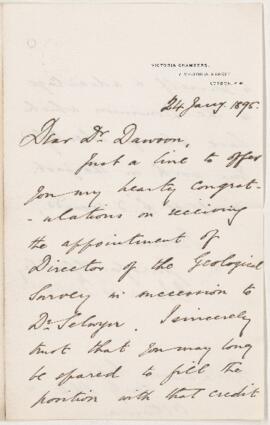 VICTORIA CHAMBERS,
VICTORIA STREET
LONDON, S.W.
24 Jany. 1895.
Dear Dr. Dawson,
Just a line to offer
you my hearty congrat-
-ulations on receiving
the appointment of
Director of the Geological
Survey in succession to
Dr. Selwyn. I sincerely
trust that you may long
be spared to fill the
position with that credit